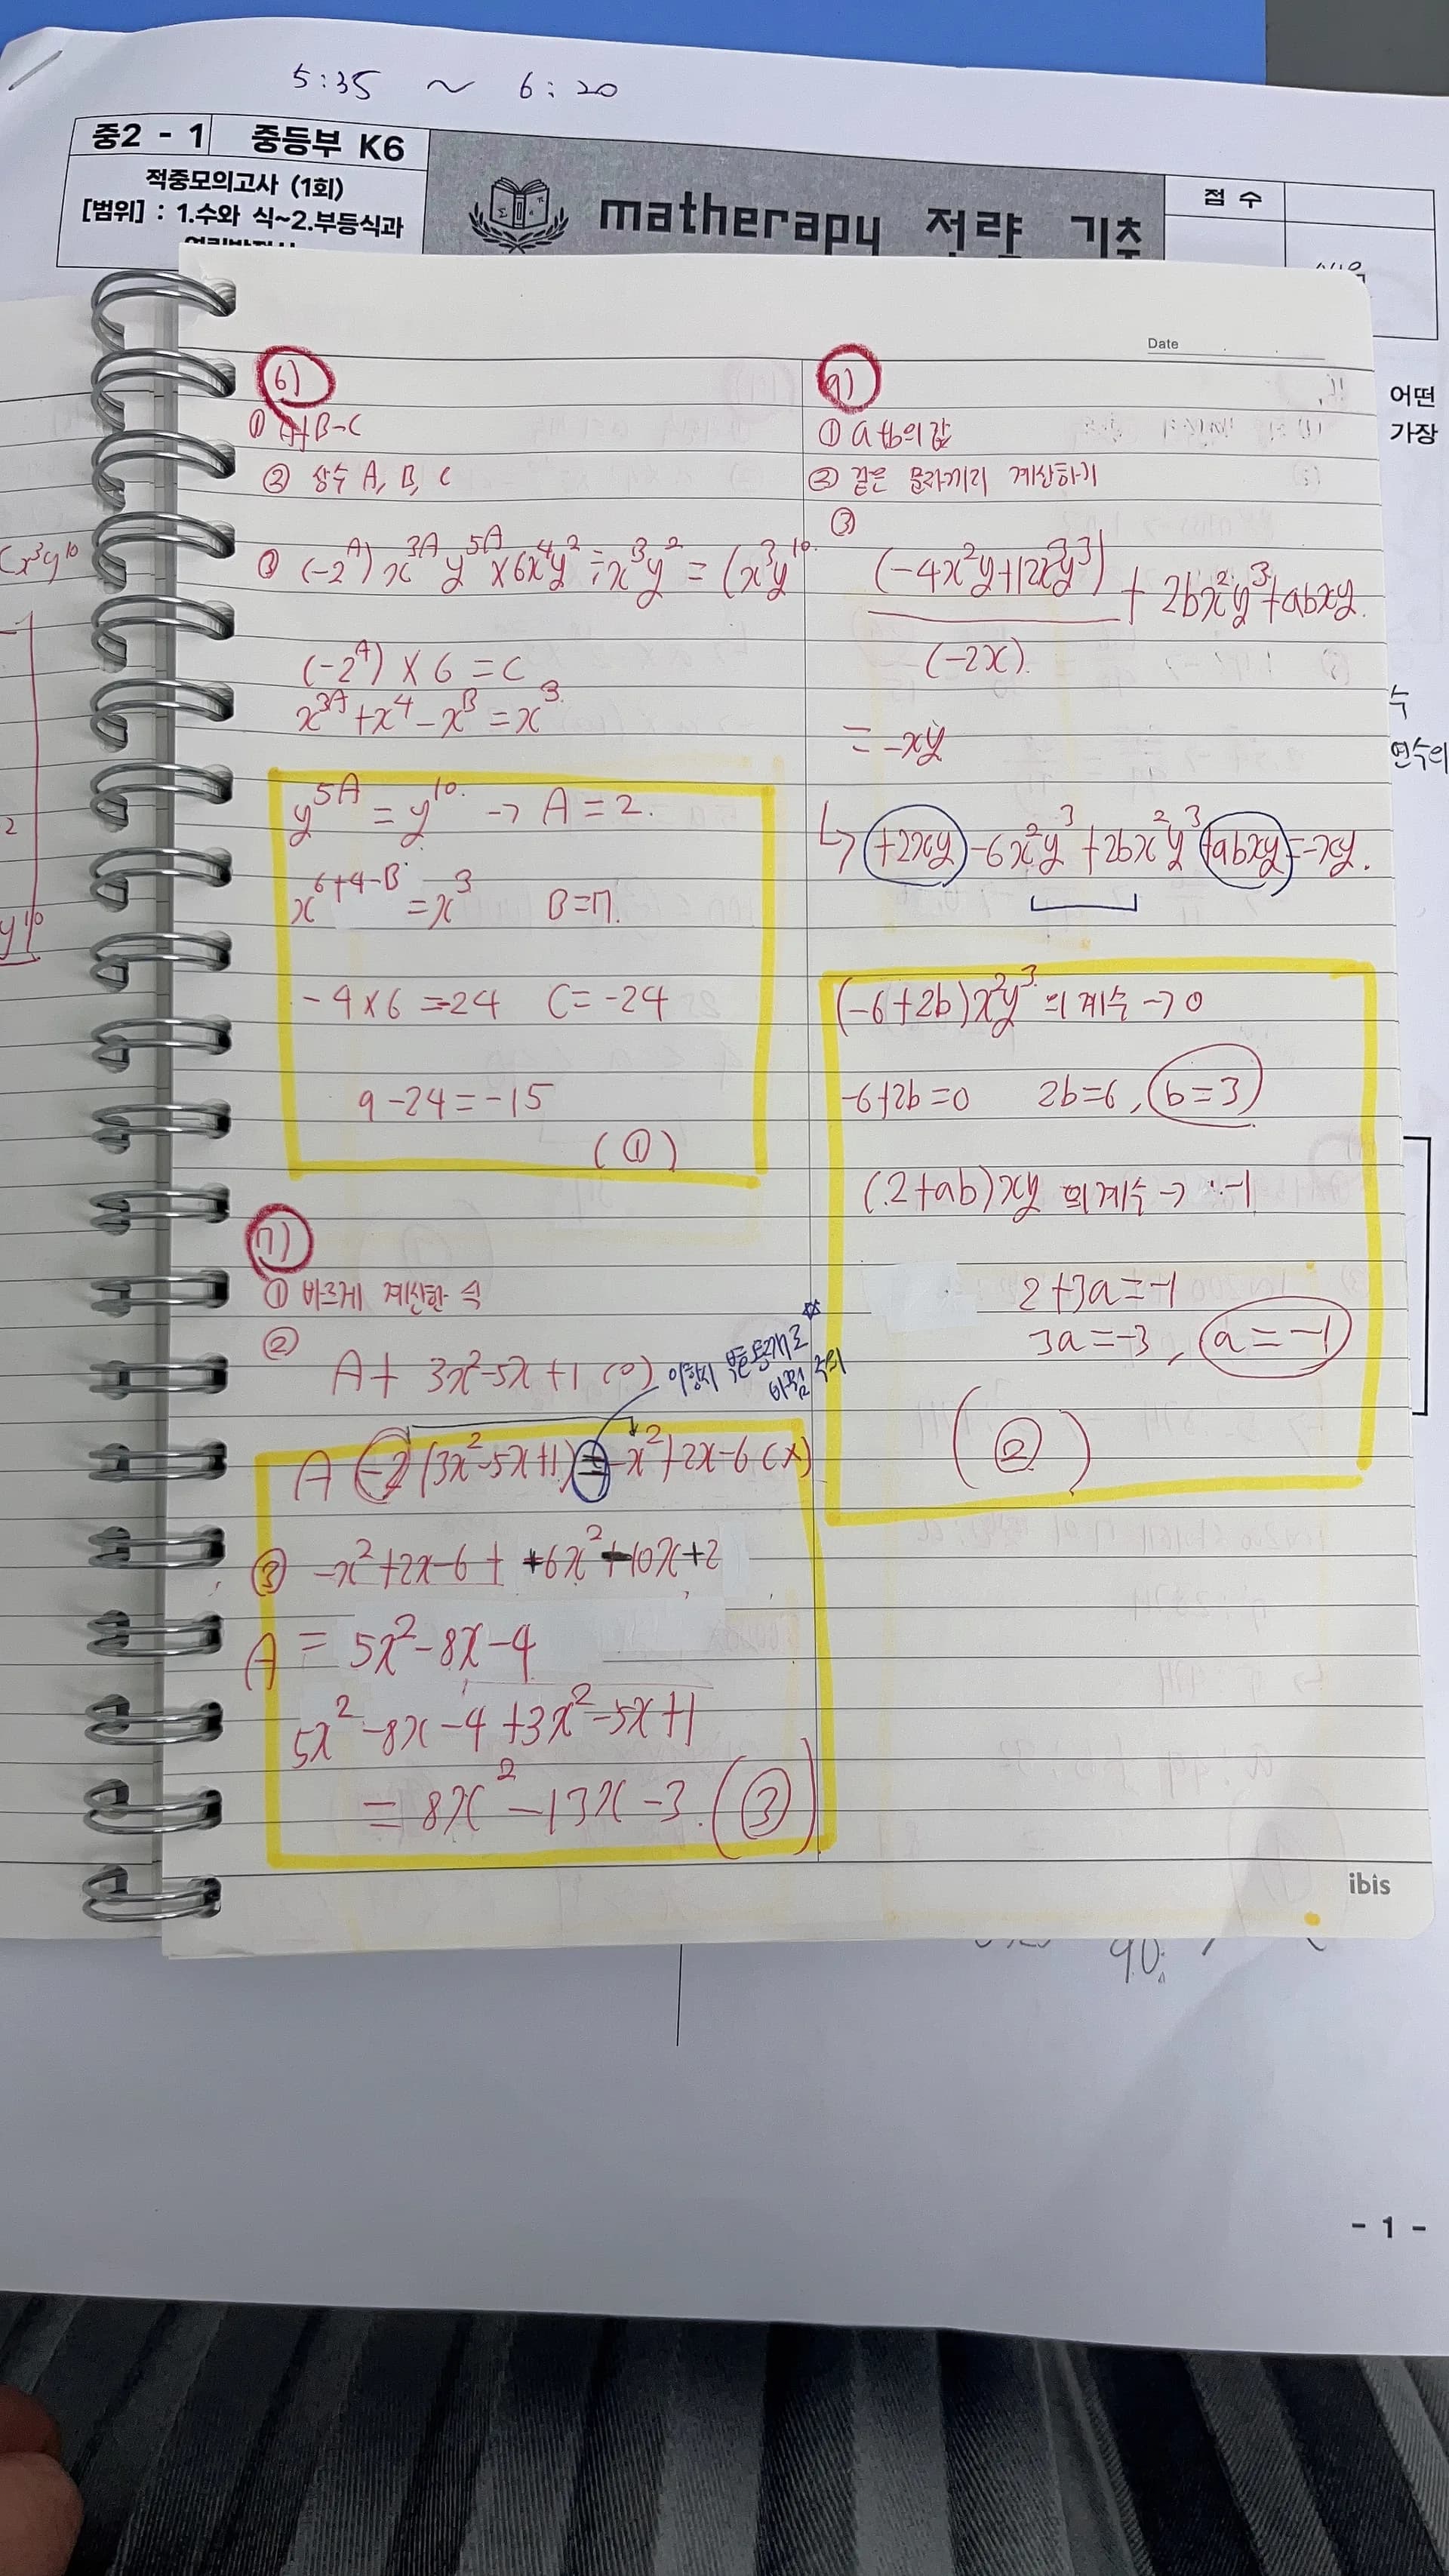 5:35 ~ 6:20
중2 - 1 중등부 K6
적중모의고사 (1회)
[범위] : 1.수와 식~2.부등식과
matherapy 전략 기출
점 수
Date
어떤
가장
수
연수의
Cx³y¹⁰
6)
① A+B-C
② 상수 A, B, C
③ (-2^A) x^3A y^5A × 6x⁴y² ÷ x^B y² = Cx³y¹⁰
(-2^A) × 6 = C
x^3A + x⁴ - x^B = x³
y^5A = y¹⁰ → A = 2.
x^6+4-B = x³ B=7.
-4×6 = -24 C = -24
9-24 = -15
(①)
7)
① 바르게 계산한 식
② A + 3x²-5x+1 (o)
이항시 부호 통째로
바뀜 주의
A -2(3x²-5x+1) = -x²+2x-6 (x)
③ -x²+2x-6 + +6x²-10x+2
A = 5x²-8x-4
5x²-8x-4+3x²-5x+1
= 8x²-13x-3. (③)
9)
① a+b의 값
② 같은 문자끼리 계산하기
③
(-4x²y+12x³y³)
(-2x)
+ 2bx²y³+abxy.
= -xy
↳ +2xy -6x²y³ +2bx²y³ +abxy = -xy.
(-6+2b)x²y³의 계수 → 0
-6+2b=0 2b=6, b=3
(2+ab)xy의 계수 → -1
2+3a=-1
3a=-3, a=-1
(②)
ibis
90.
- 1 -